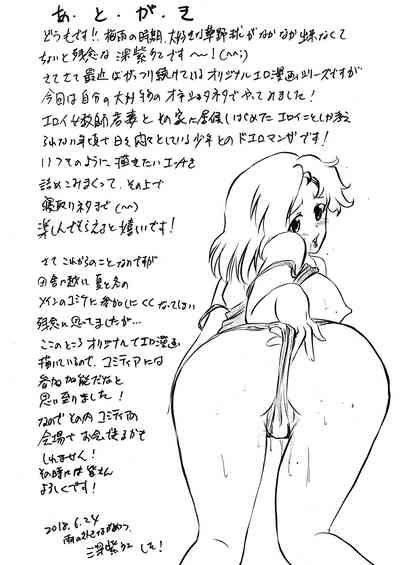 あ・と・が・き
どうもです!! 梅雨の時期、大好きな草野球がなかなか出来なくて
ちょいと残念な 深紫タニです〜! (^^;)
さてさて最近はがっつり続けているオリジナルエロ漫画シリーズですが
今回は自分の大好物の
エロイ女教師若妻と
られない年頃で日々悶々としている少年とのドエロマンガです!
いつものように 描きたいエロを
詰めこみまくって、その上で
寝取りネタまで (^^)
楽しんでもらえると嬉しいです!
さて これからのことなのですが
夏と冬の
メインのコミケに参加しにくくなってしまい
残念に思ってましたが…
ここのところ オリジナルでエロ漫画
描いているので、コミティアには
参加可能だなと
思い至りました!
なので その内 コミティアの
会場でお会い出来るかも
しれません!
その時には皆さん
よろしくです!
2018.6.24
した!